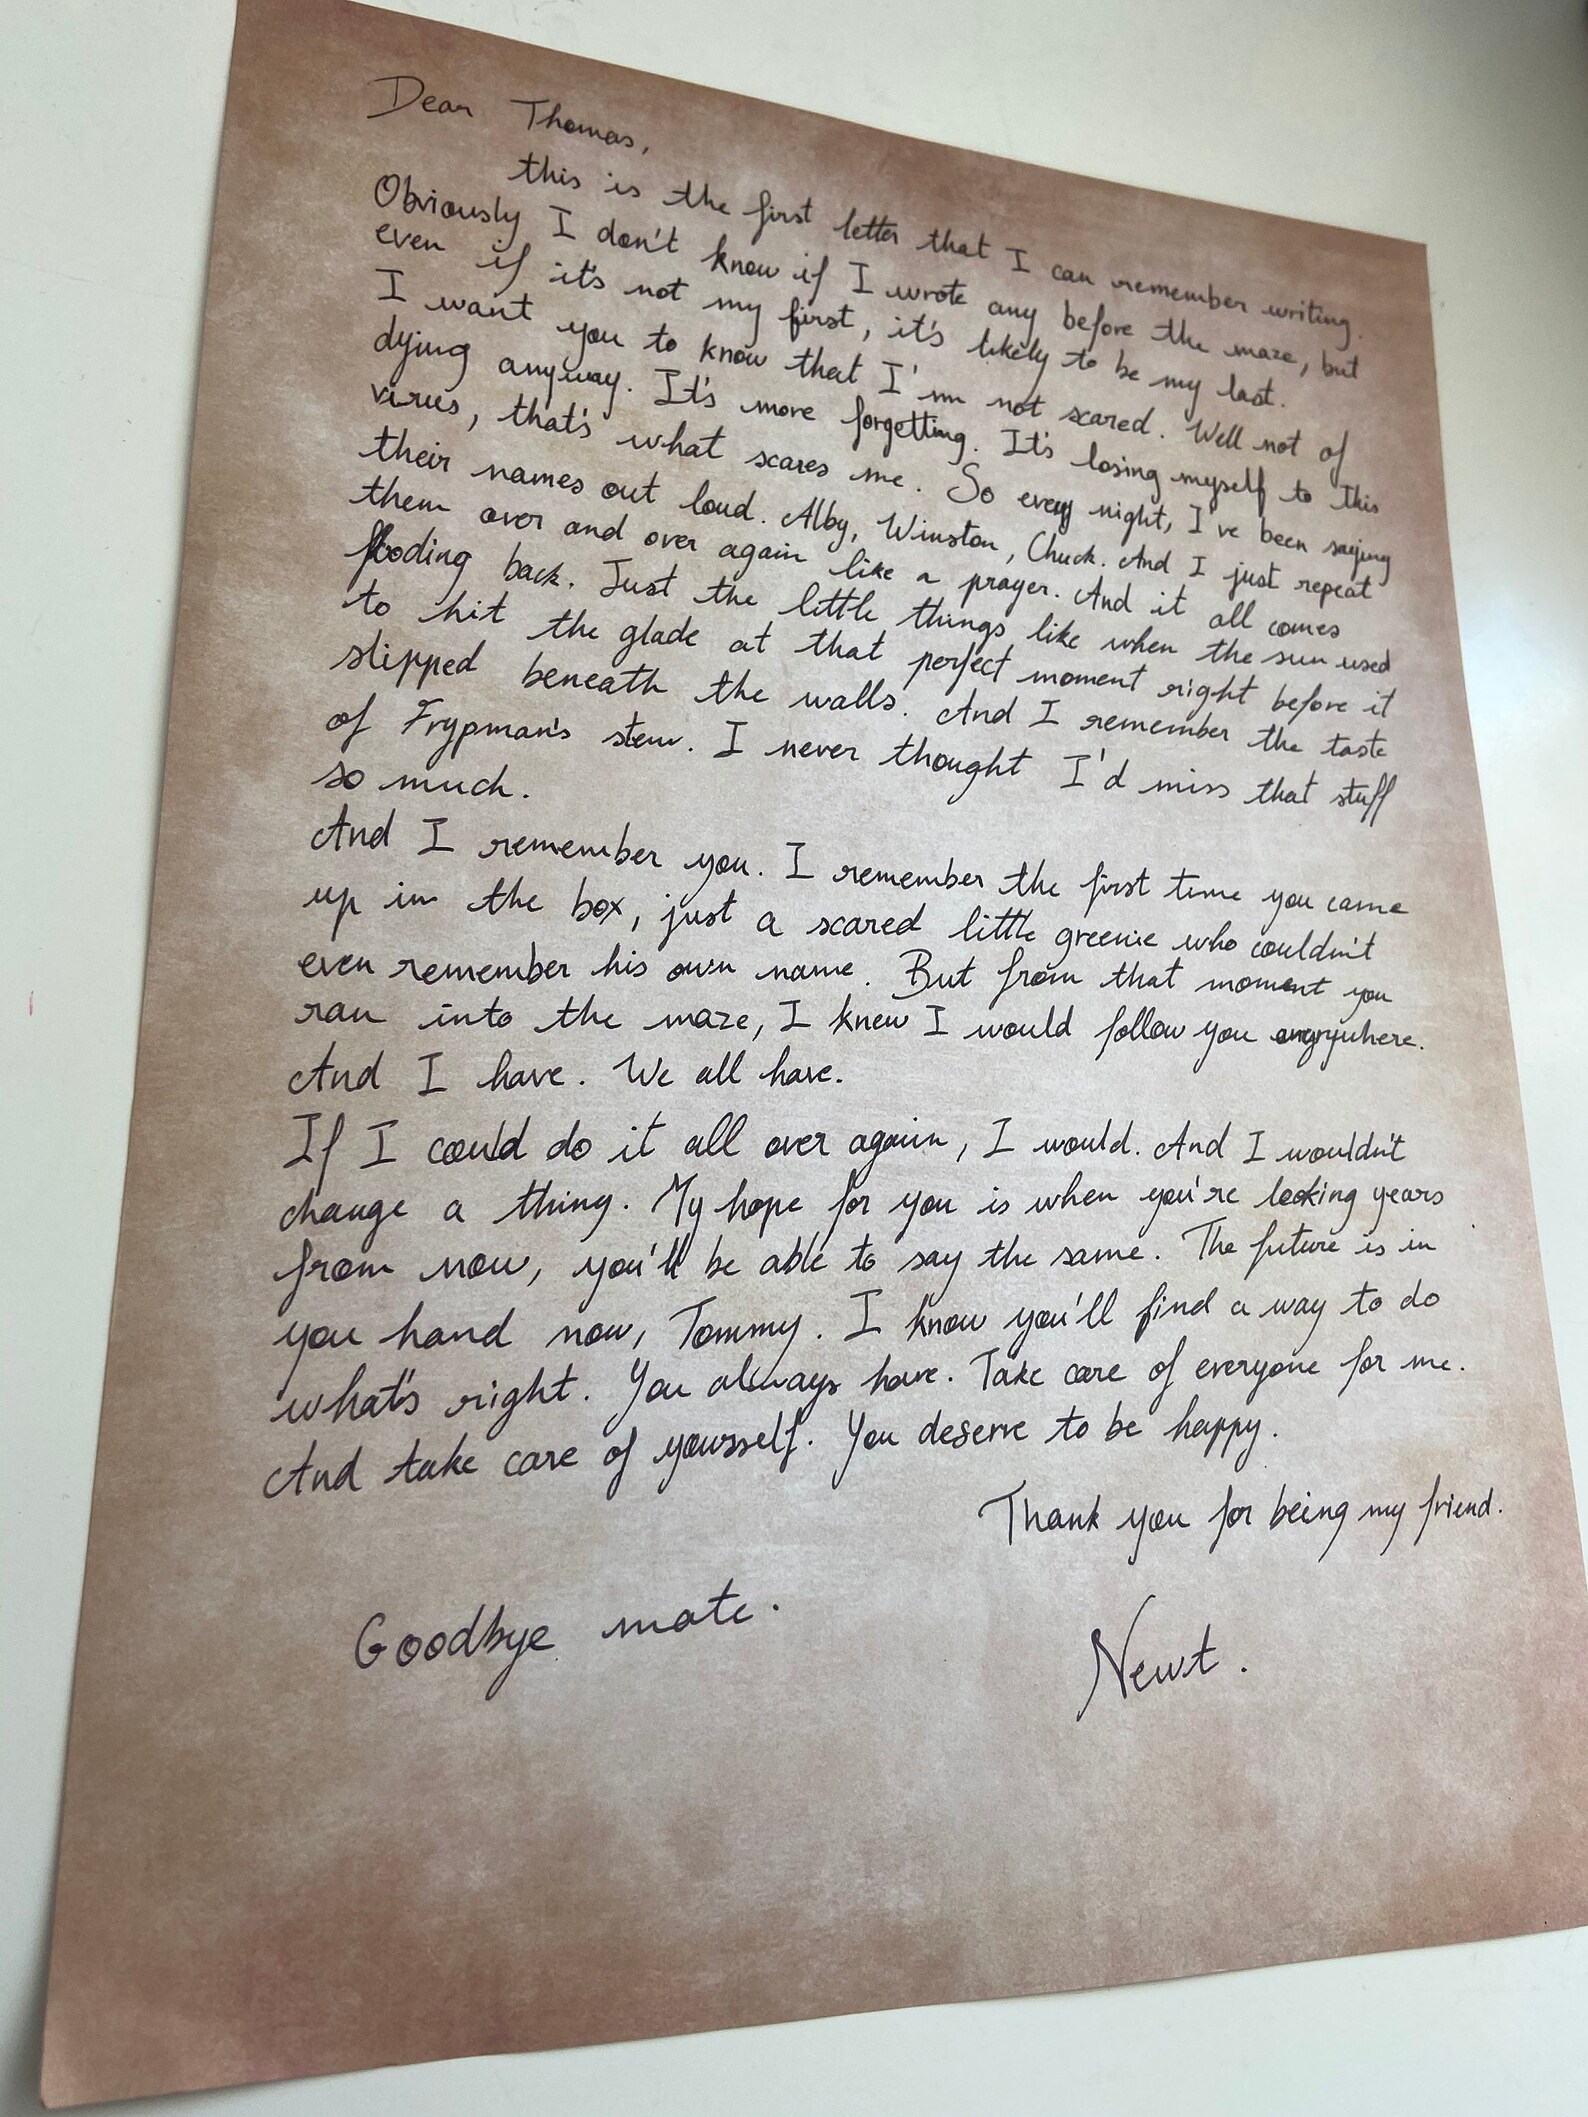 Dear Thomas,
this is the first letter that I can remember writing.
Obviously I don't know if I wrote any before the maze, but
even if it's not my first, it's likely to be my last.
I want you to know that I'm not scared. Well not of
dying anyway. It's more forgetting. It's losing myself to this
virus, that's what scares me. So every night, I've been saying
their names out loud. Alby, Winston, Chuck. And I just repeat
them over and over again like a prayer. And it all comes
flooding back. Just the little things like when the sun used
to hit the glade at that perfect moment right before it
slipped beneath the walls. And I remember the taste
of Frypman's stew. I never thought I'd miss that stuff
so much.
And I remember you. I remember the first time you came
up in the box, just a scared little greenie who couldn't
even remember his own name. But from that moment you
ran into the maze, I knew I would follow you anywhere.
And I have. We all have.
If I could do it all over again, I would. And I wouldn't
change a thing. My hope for you is when you're looking years
from now, you'll be able to say the same. The future is in
you hand now, Tommy. I know you'll find a way to do
what's right. You always have. Take care of everyone for me.
And take care of yoursself. You deserve to be happy.
Thank you for being my friend.
Goodbye mate.
Newt.